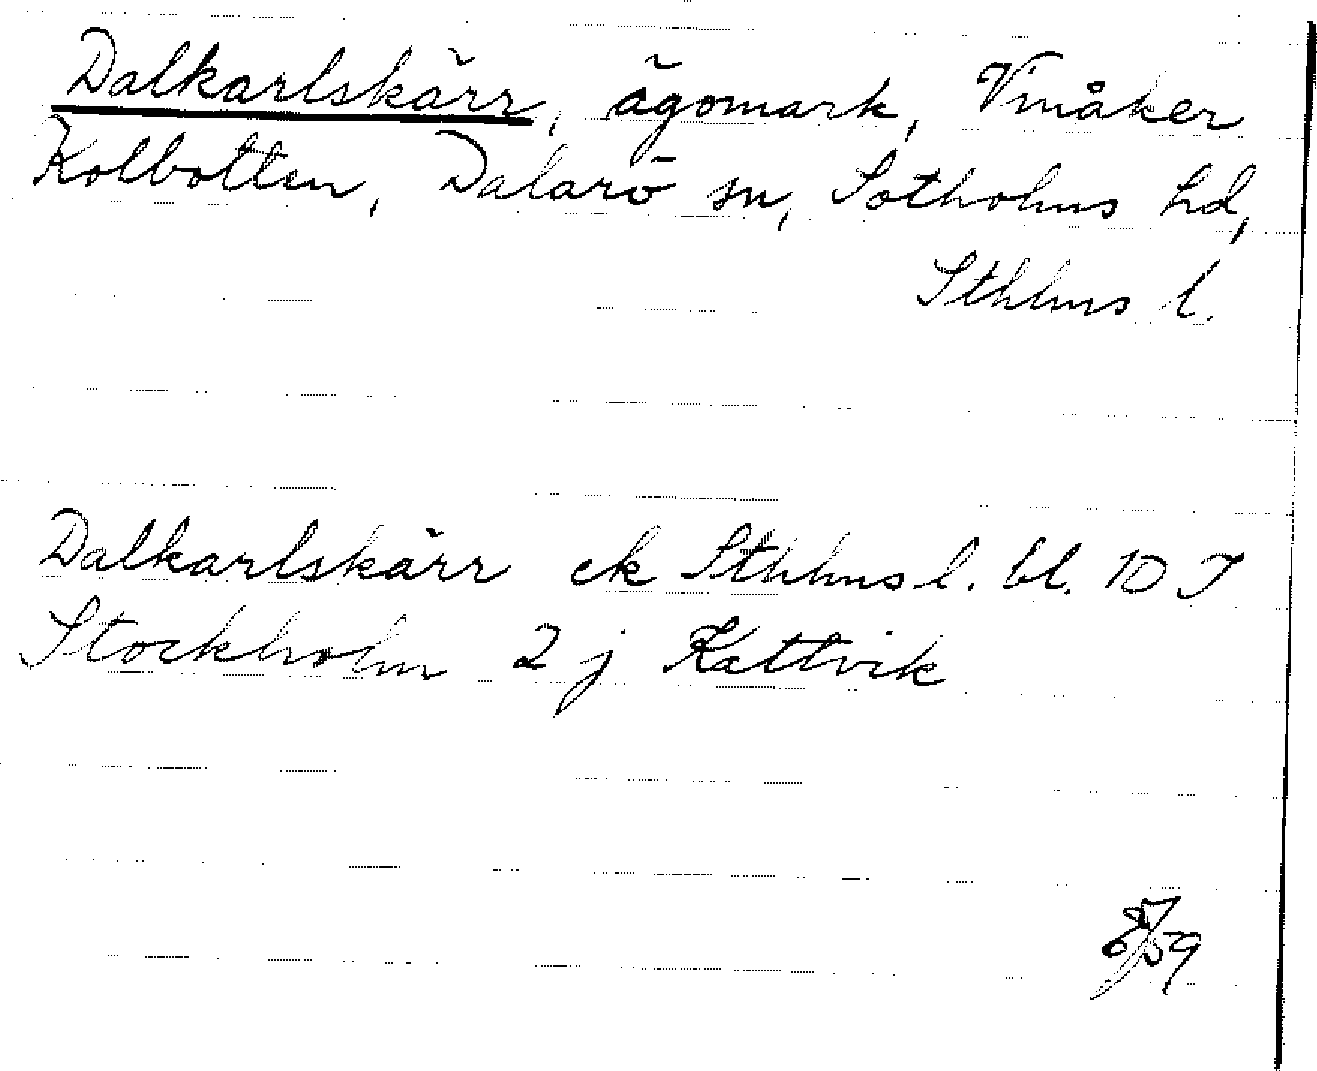 Dalkarlskärr, ägomark, Vinåker
Kolbotten, Dalarö sn, Sotholms hd,
Sthlms l.
Dalkarlskärr ek Sthlms l. bl. 10 I
Stockholm 2 j Kattvik